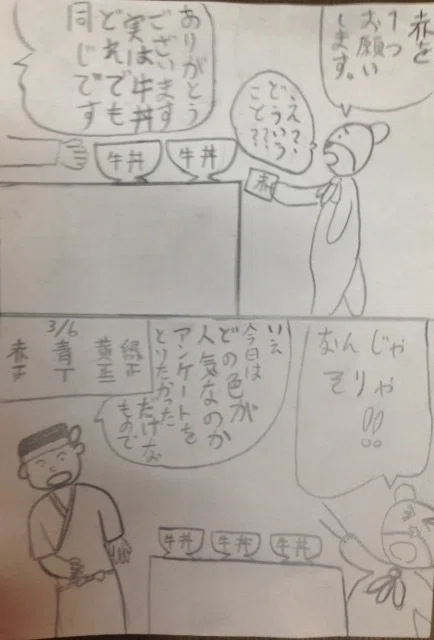 赤を
1つ
お願い
します。
ええ?、
どういう
こと??
赤
ありがとう
ございます
実は牛丼
どれでも
同じです
牛丼
牛丼
なんじゃ
そりゃ
!!
いえ
今日は
どの色が
人気なのか
アンケートを
とりたかった
だけな
もので
緑正
黄
3/6
青丁
赤正
牛丼
牛丼
牛丼